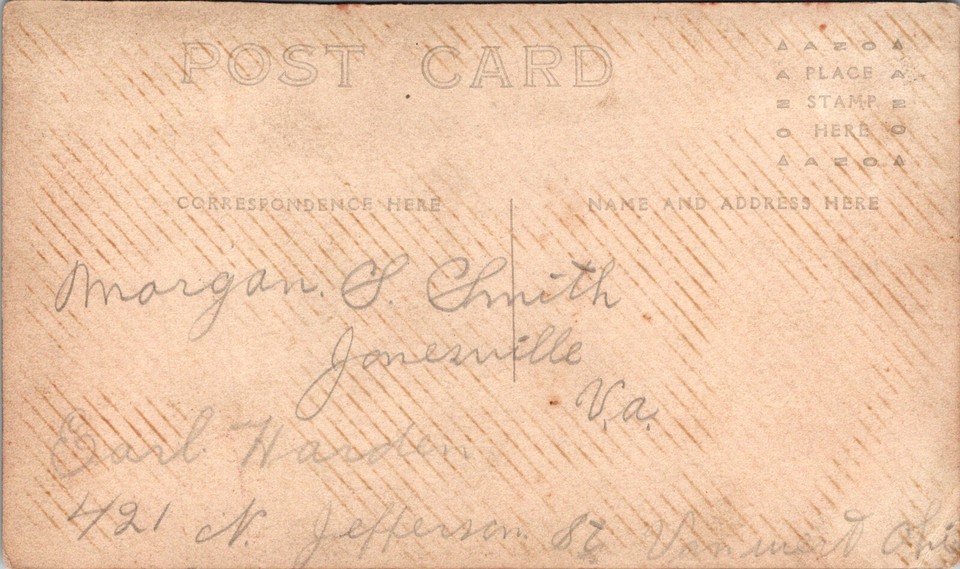 POST CARD
PLACE
STAMP
HERE
CORRESPONDENCE HERE
NAME AND ADDRESS HERE
Morgan. S. Smith
Jonesville
Va.
Earl Harden
421 N. Jefferson St Vanwert Ohio